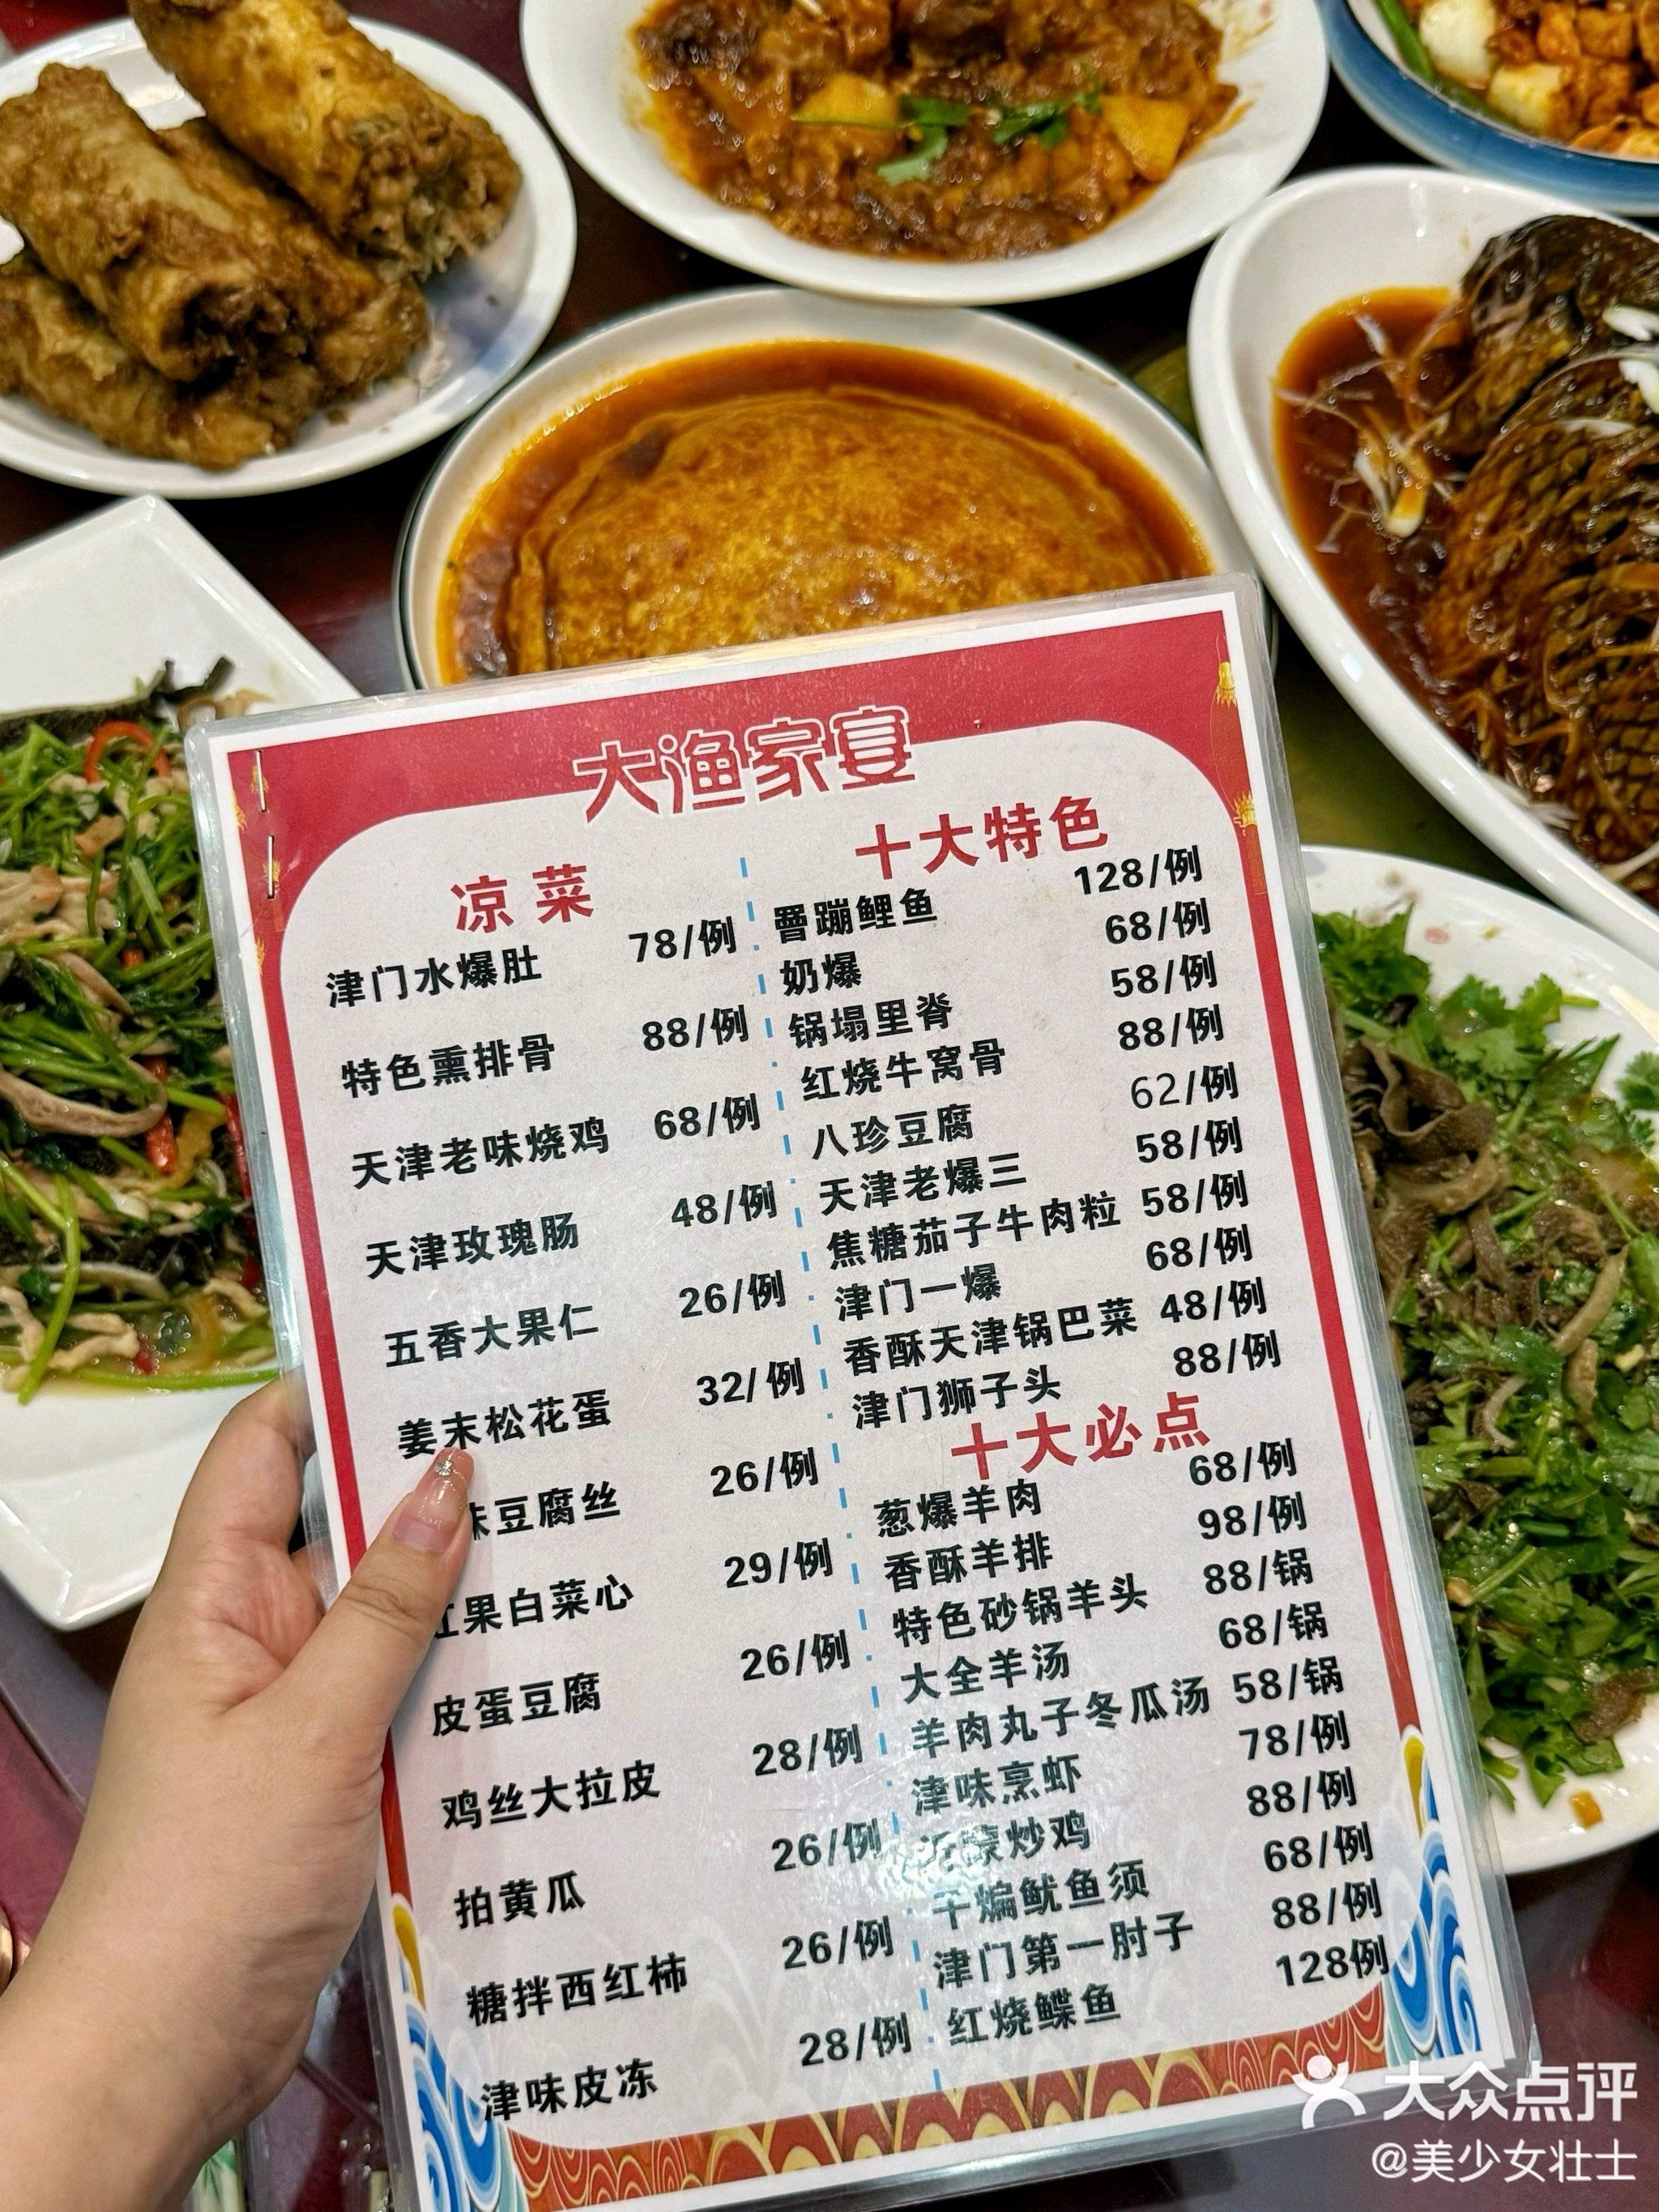 大渔家宴
凉菜
津门水爆肚 78/例
特色熏排骨 88/例
天津老味烧鸡 68/例
天津玫瑰肠 48/例
五香大果仁 26/例
姜末松花蛋 32/例
味豆腐丝 26/例
红果白菜心 29/例
皮蛋豆腐 26/例
鸡丝大拉皮 28/例
拍黄瓜 26/例
糖拌西红柿 26/例
津味皮冻 28/例
十大特色
罾蹦鲤鱼 128/例
奶爆 68/例
锅塌里脊 58/例
红烧牛窝骨 88/例
八珍豆腐 62/例
天津老爆三 58/例
焦糖茄子牛肉粒 58/例
津门一爆 68/例
香酥天津锅巴菜 48/例
津门狮子头 88/例
十大必点
葱爆羊肉 68/例
香酥羊排 98/例
特色砂锅羊头 88/锅
大全羊汤 68/锅
羊肉丸子冬瓜汤 58/锅
津味烹虾 78/例
炒鸡 88/例
干煸鱿鱼须 68/例
津门第一肘子 88/例
红烧鲽鱼 128例
大众点评
@美少女壮士